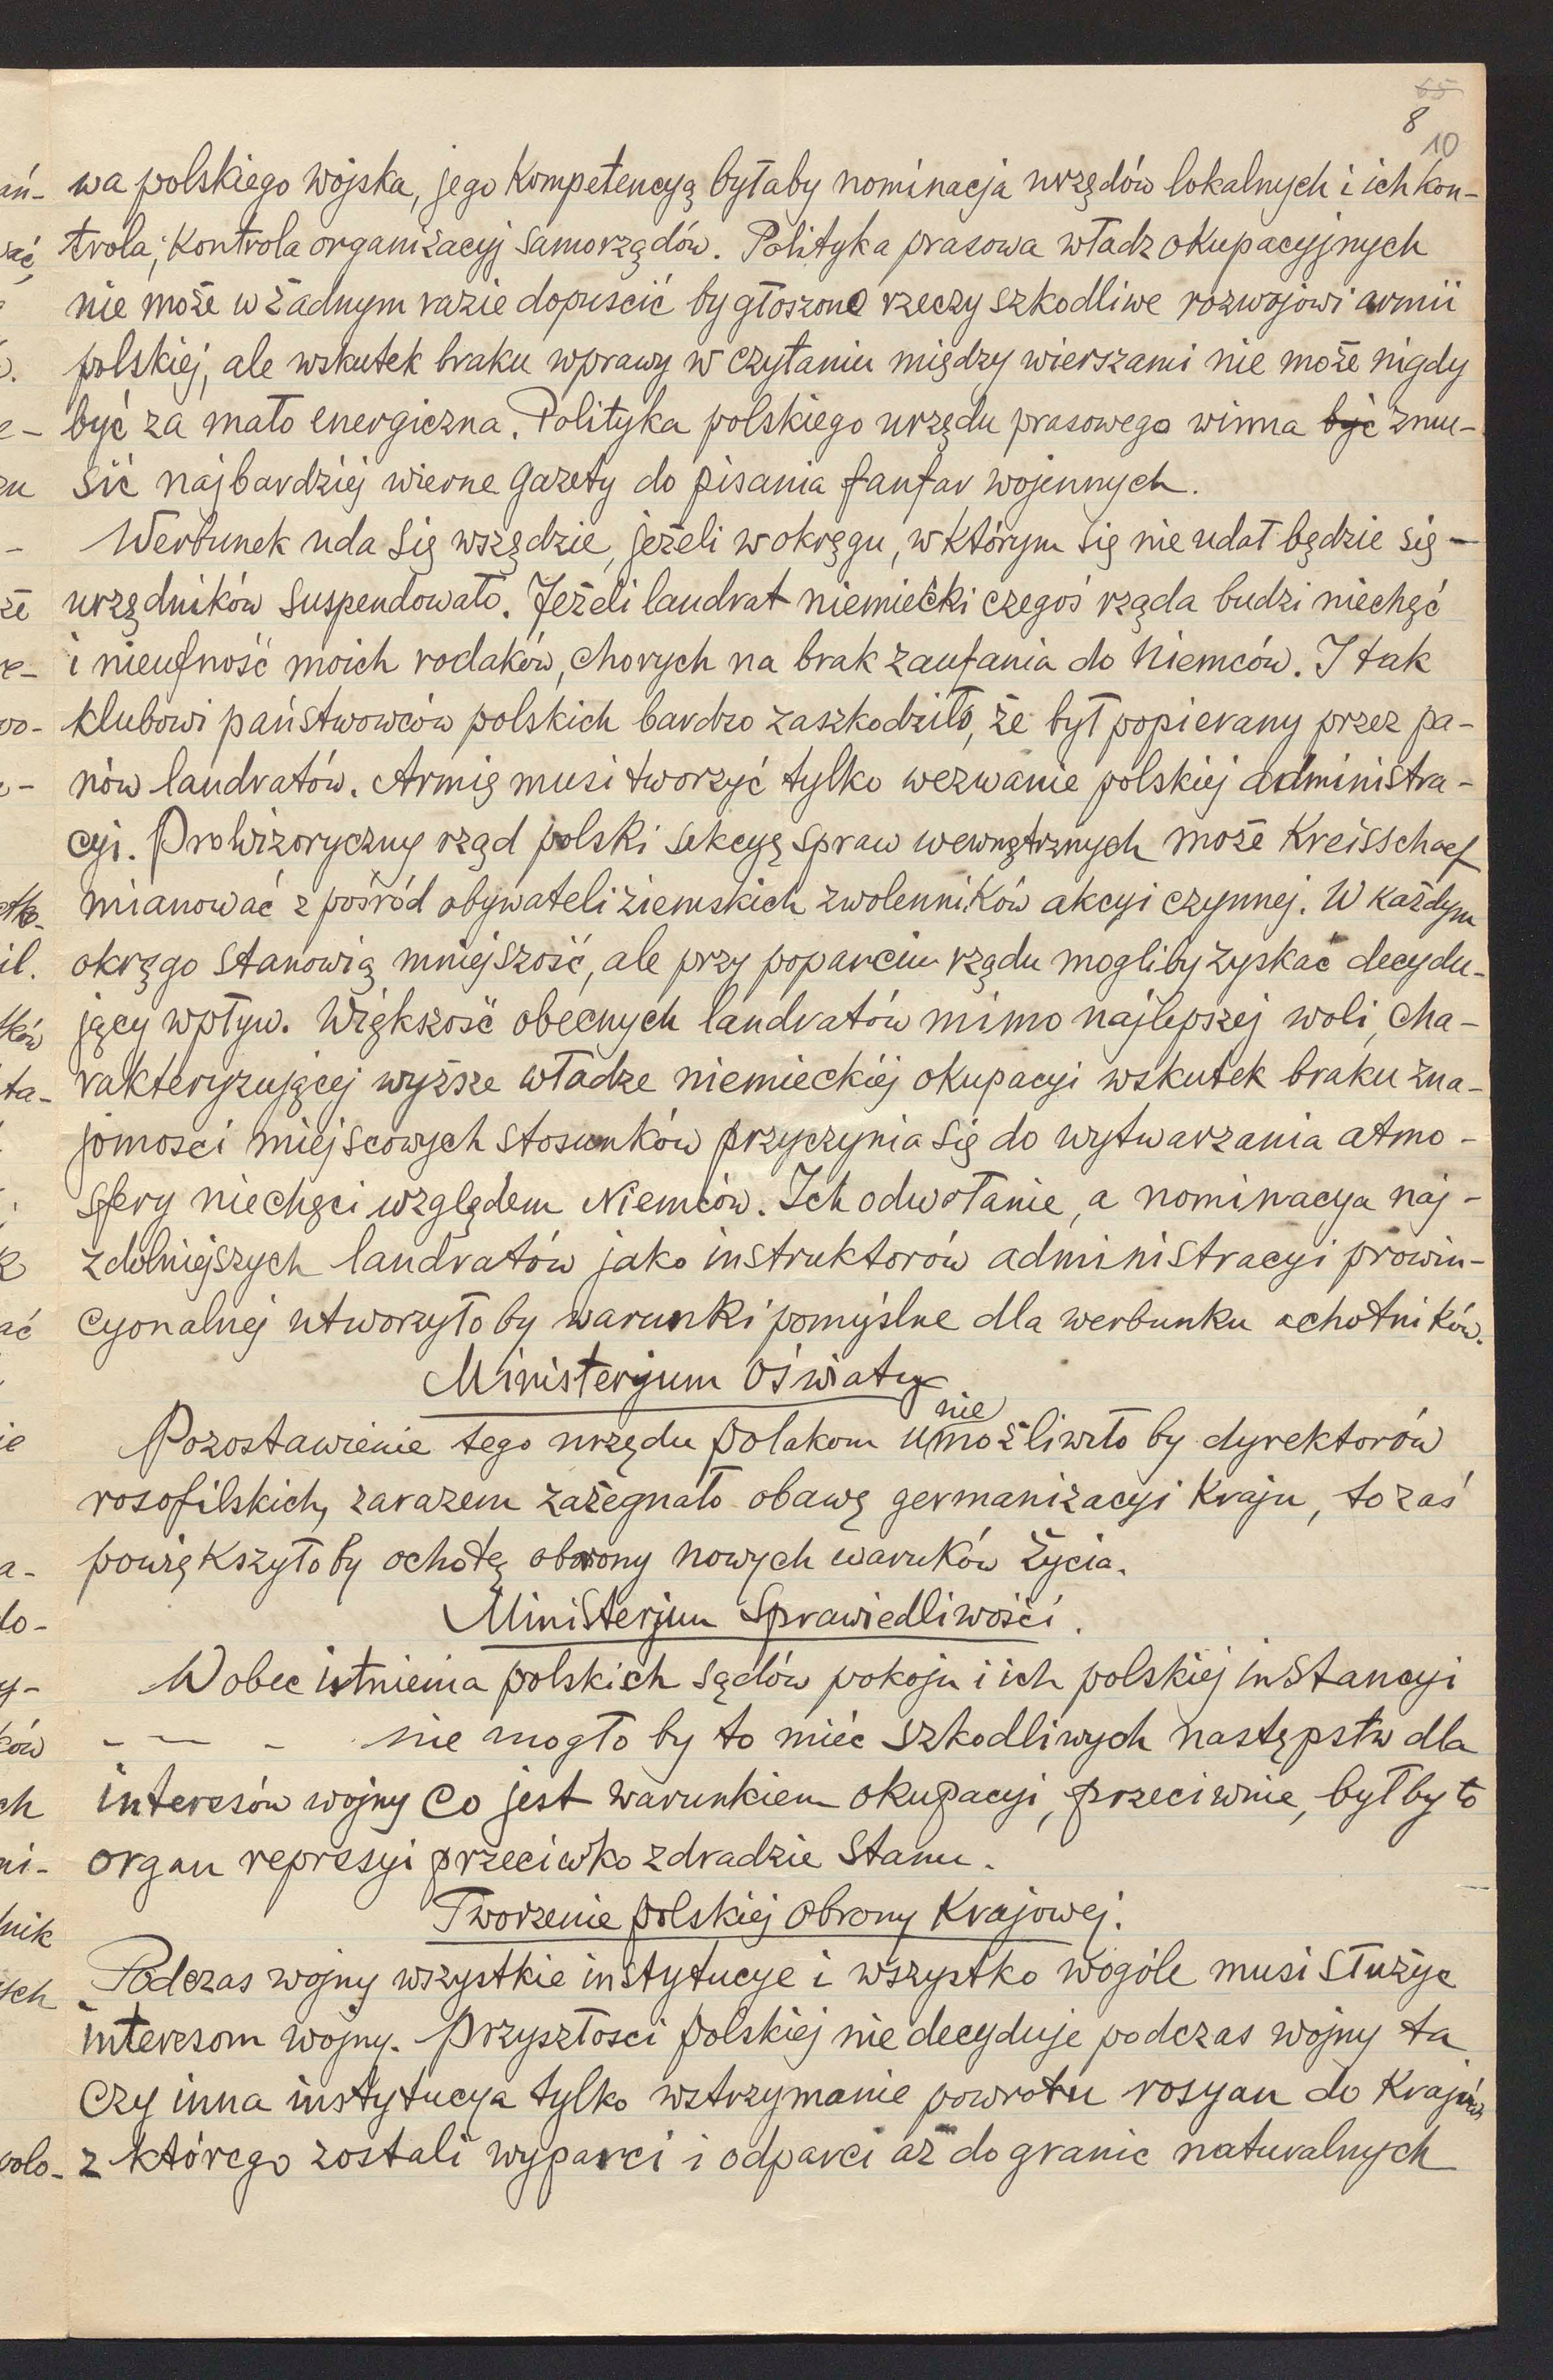 65
8
10
wa polskiego wojska, jego kompetencyą byłaby nominacja urzędów lokalnych i ich kon-
trola; kontrola organizacyj samorządów. Polityka prasowa władz okupacyjnych
nie może w żadnym razie dopuscić by głoszono rzeczy szkodliwe rozwojowi armii
polskiej, ale wskutek braku wprawy w czytaniu między wierszami nie może nigdy
być za mało energiczna. Polityka polskiego urzędu prasowego winna być zmu-
sić najbardziej wierne gazety do pisania fanfar wojennych.
Werbunek uda się wszędzie, jeżeli w okręgu, w którym się nie udał będzie się -
urzędników suspendowało. Jeżeli landrat niemiecki czegoś rząda budzi niechęć
i nieufność moich rodaków, chorych na brak zaufania do Niemców. I tak
klubowi państwowców polskich bardzo zaszkodziło, że był popierany przez pa-
nów landratów. Armię musi tworzyć tylko wezwanie polskiej administra-
cyi. Prowizoryczny rząd polski sekcyę spraw wewnętrznych może Kreisschaef
mianować z pośród obywateli ziemskich zwolenników akcyi czynnej. W każdym
okręgo stanowią mniejszość, ale przy poparciu rządu mogliby zyskać decydu-
jący wpływ. Większość obecnych landratów mimo najlepszej woli, cha-
rakteryzującej wyższe władze niemieckiej okupacyi wskutek braku zna-
jomosci miejscowych stosunków przyczynia się do wytwarzania atmo-
sfery niechęci względem Niemców. Ich odwołanie, a nominacya naj-
zdolniejszych landratów jako instruktorów administracyi prowin-
cyonalnej utworzyło by warunki pomyślne dla werbunku ochotników.
Ministeryum Oświaty
Pozostawienie tego urzędu polakom uniemożliwiło by dyrektorów
rosofilskich, zarazem zażegnało obawę germanizacyi kraju, to zaś
powiększyło by ochotę obrony nowych waruków życia.
Ministerjum Sprawiedliwości.
Wobec istnienia polskich sądów pokoju i ich polskiej instancyi
- — - nie mogło by to mieć szkodliwych następstw dla
interesów wojny co jest warunkiem okupacyi, przeciwnie, był by to
organ represyi przeciwko zdradzie stanu.
Tworzenie polskiej obrony Krajowej.
Podczas wojny wszystkie instytucye i wszystko wogóle musi służyc
interesom wojny. Przyszłosci polskiej nie decyduje podczas wojny ta
czy inna instytucya tylko wstrzymanie powrotu rosyan do
z którego zostali wyparci i odparci aż do granic naturalnych